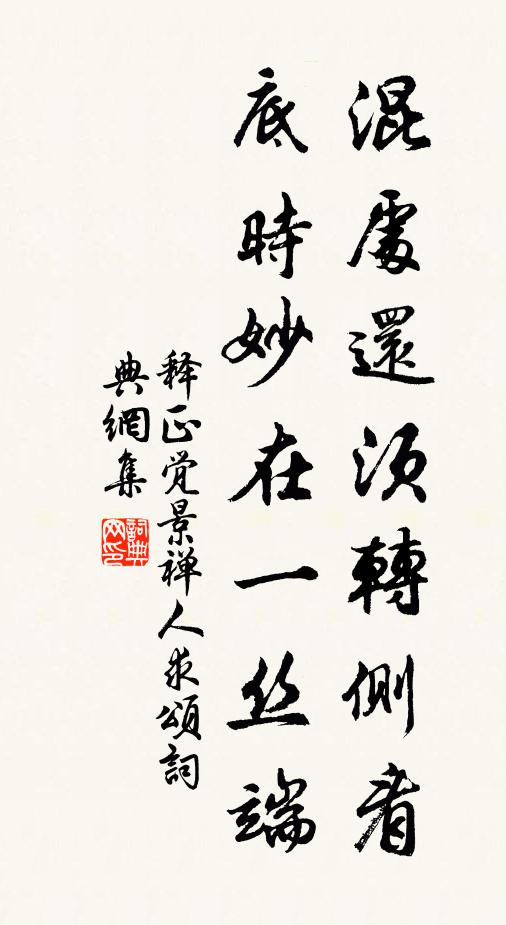 混處還須轉側看
底時妙在一丝端
释正觉景禅人求頌詞
典網集
詞典
网印